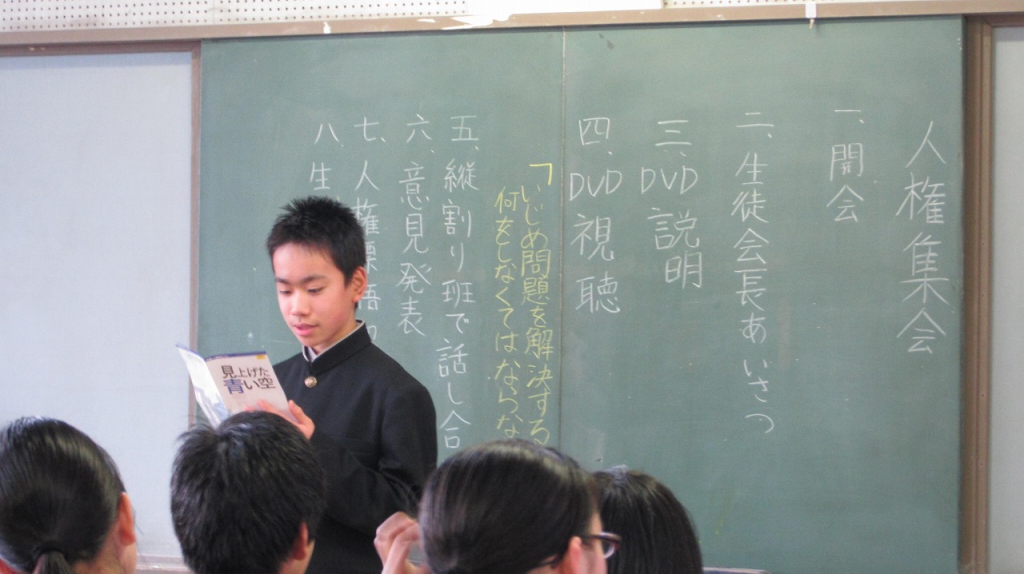 人権集会
一、開会
二、生徒会長あいさつ
三、DVD説明
四、DVD視聴
「いじめ問題を解決する
何をしなくてはならな
五、縦割り班で話し合
六、意見発表
七、人権標語
八、生
見上げた
青い空